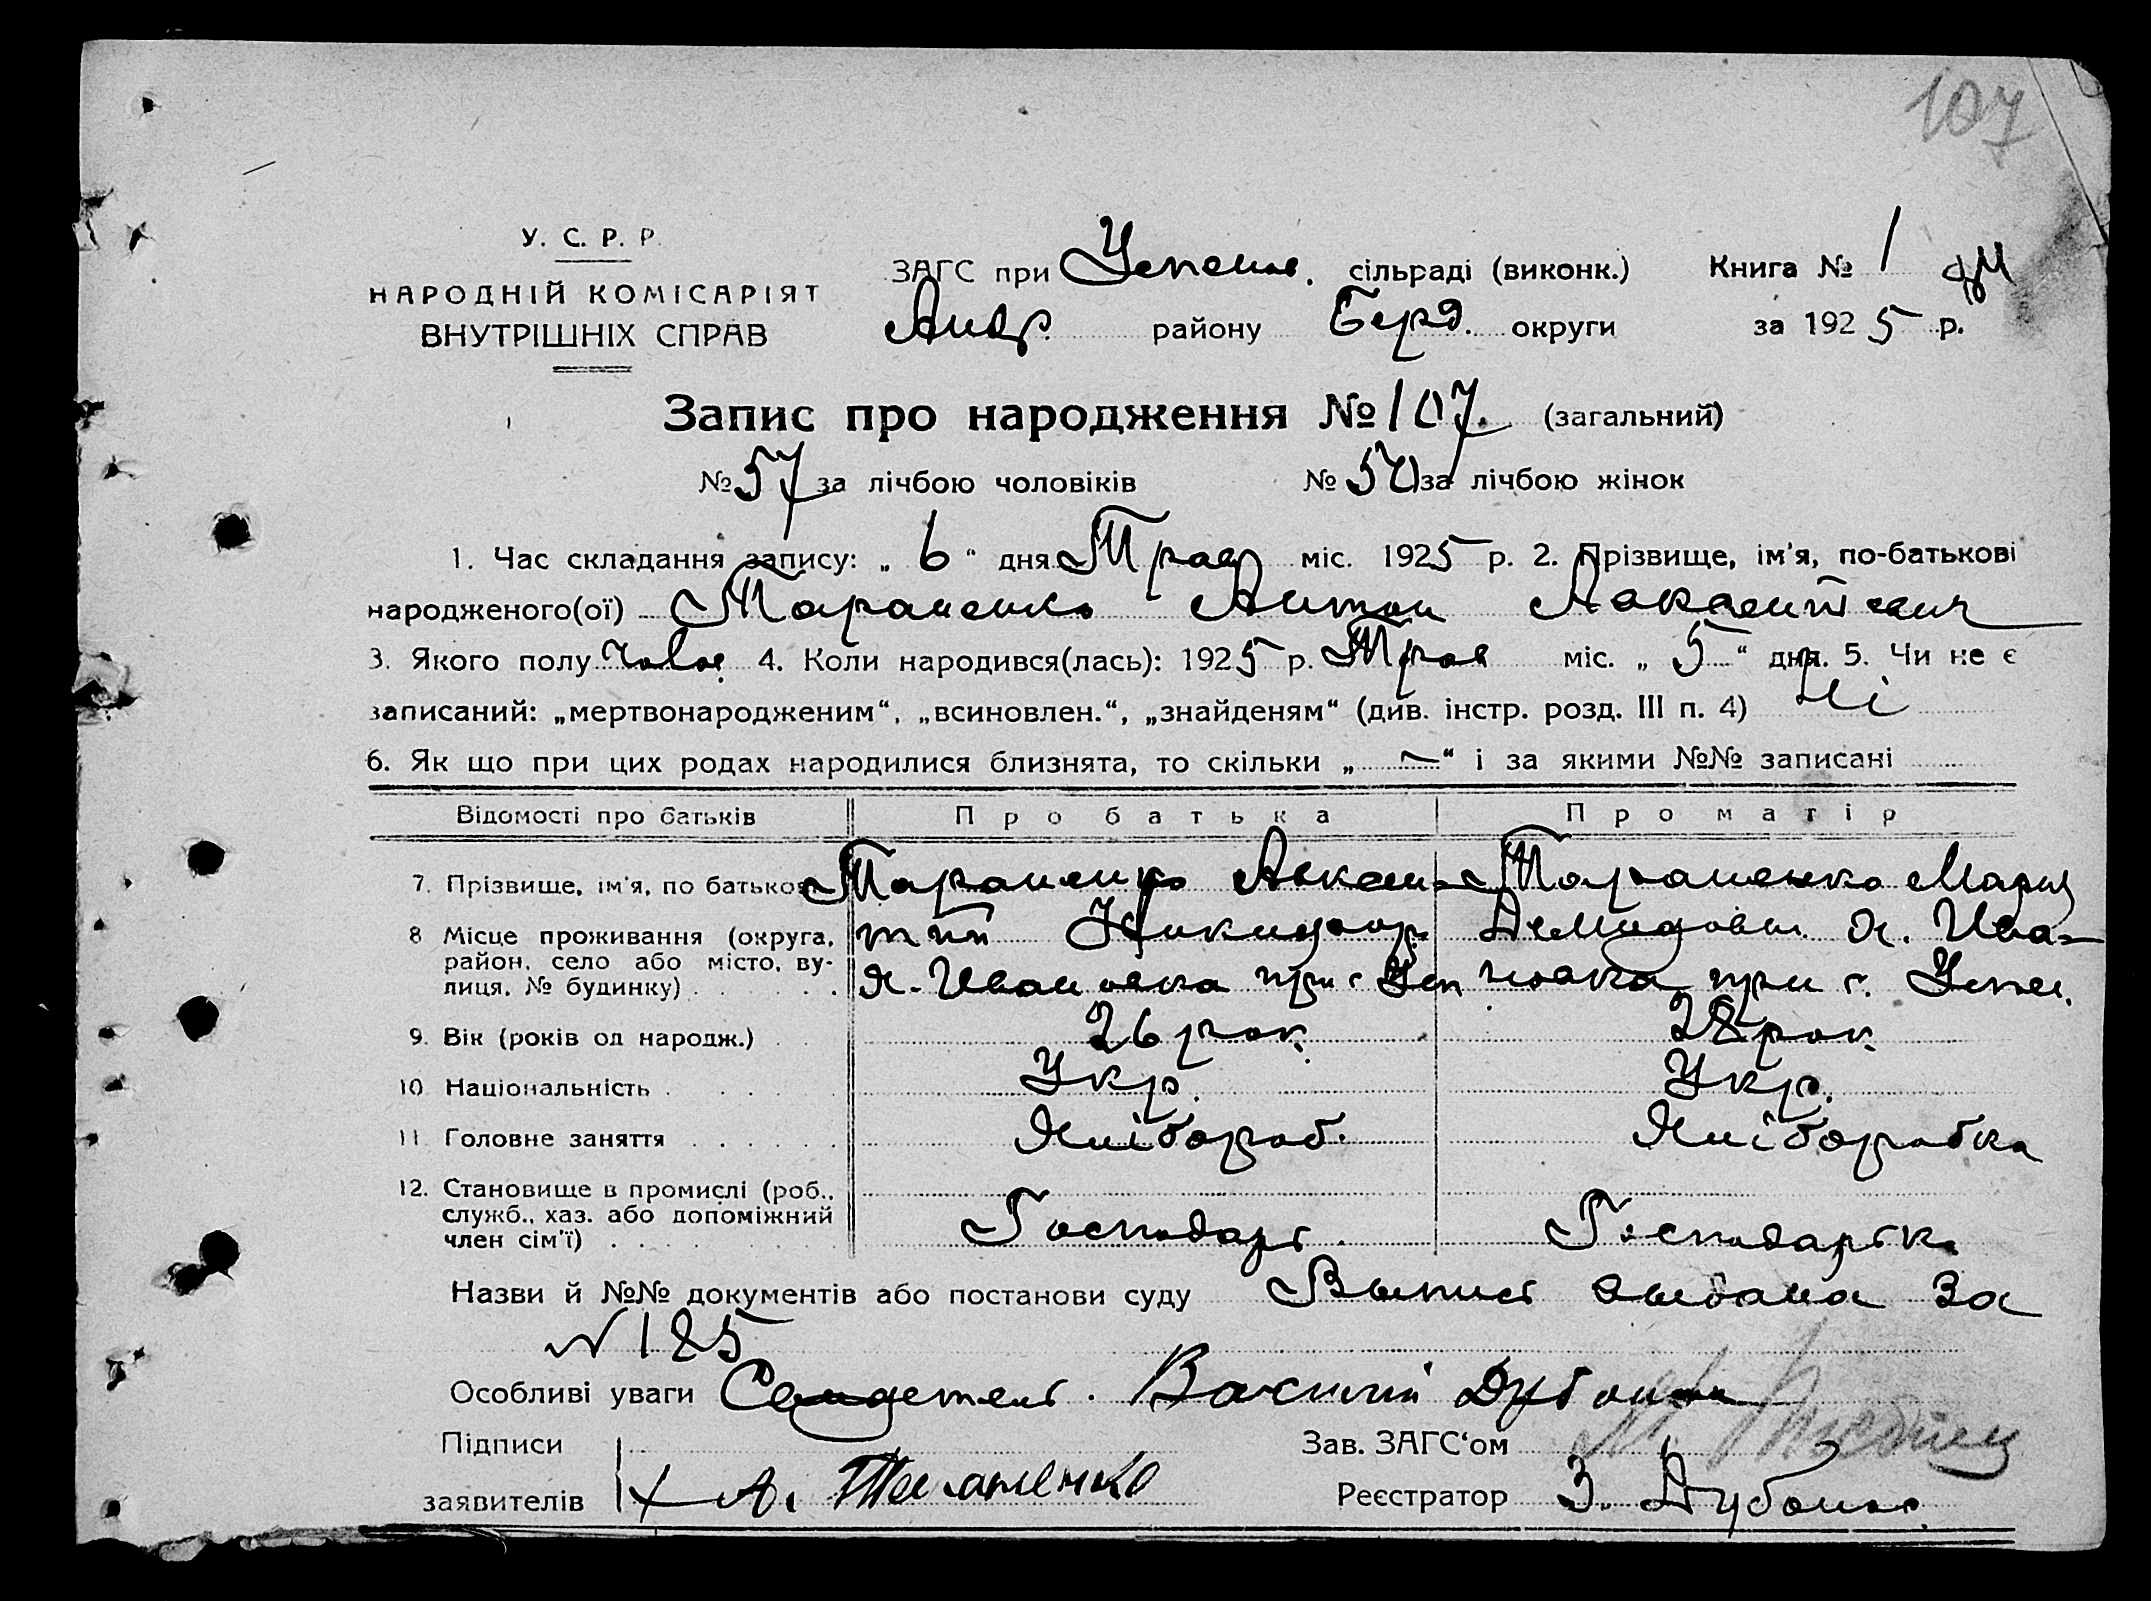 107
У. С. Р. Р.
НАРОДНІЙ КОМІСАРІЯТ
ВНУТРІШНІХ СПРАВ
ЗАГС при Успенів. сільраді (виконк.) Книга № 1
Андр. району Берд. округи за 1925 р.
Запис про народження № 107. (загальний)
№ 57 за лічбою чоловіків № 50 за лічбою жінок
1. Час складання запису: „ 6 “ дня Трав міс. 1925 р. 2. Прізвище, ім'я, по-батькові
народженого(ої) Тараненко Антон Авксентевич
3. Якого полу чолов. 4. Коли народився(лась): 1925 р. Трав міс. „ 5 “ дня. 5. Чи не є
записаний: „мертвонародженим“, „всиновлен.“, „знайденям“ (див. інстр. розд. III п. 4) Ні
6. Як що при цих родах народилися близнята, то скільки „ — “ і за якими №№ записані
Відомості про батьків Про батька Про матір
7. Прізвище, ім'я, по батькові Тараненко Авксен- Тараненко Мария
8 Місце проживання (округа, тий Никифор. Демидовы. х. Ива-
район, село або місто, ву- х. Ивановка при с. Усп новка при с. Успен.
лиця, № будинку)
9. Вік (років од народж.) 26 рок. 28 рок.
10 Національність Укр. Укр.
11 Головне заняття Хлібороб. Хліборобка
12. Становище в промислі (роб.,
служб., хаз. або допоміжний Господарь. Господарька
член сім'ї)
Назви й №№ документів або постанови суду Выпись выдана за
N 185
Особливі уваги Свидетель. Василий
Підписи Зав. ЗАГС'ом
заявителів + А. Тараненко Реєстратор З.